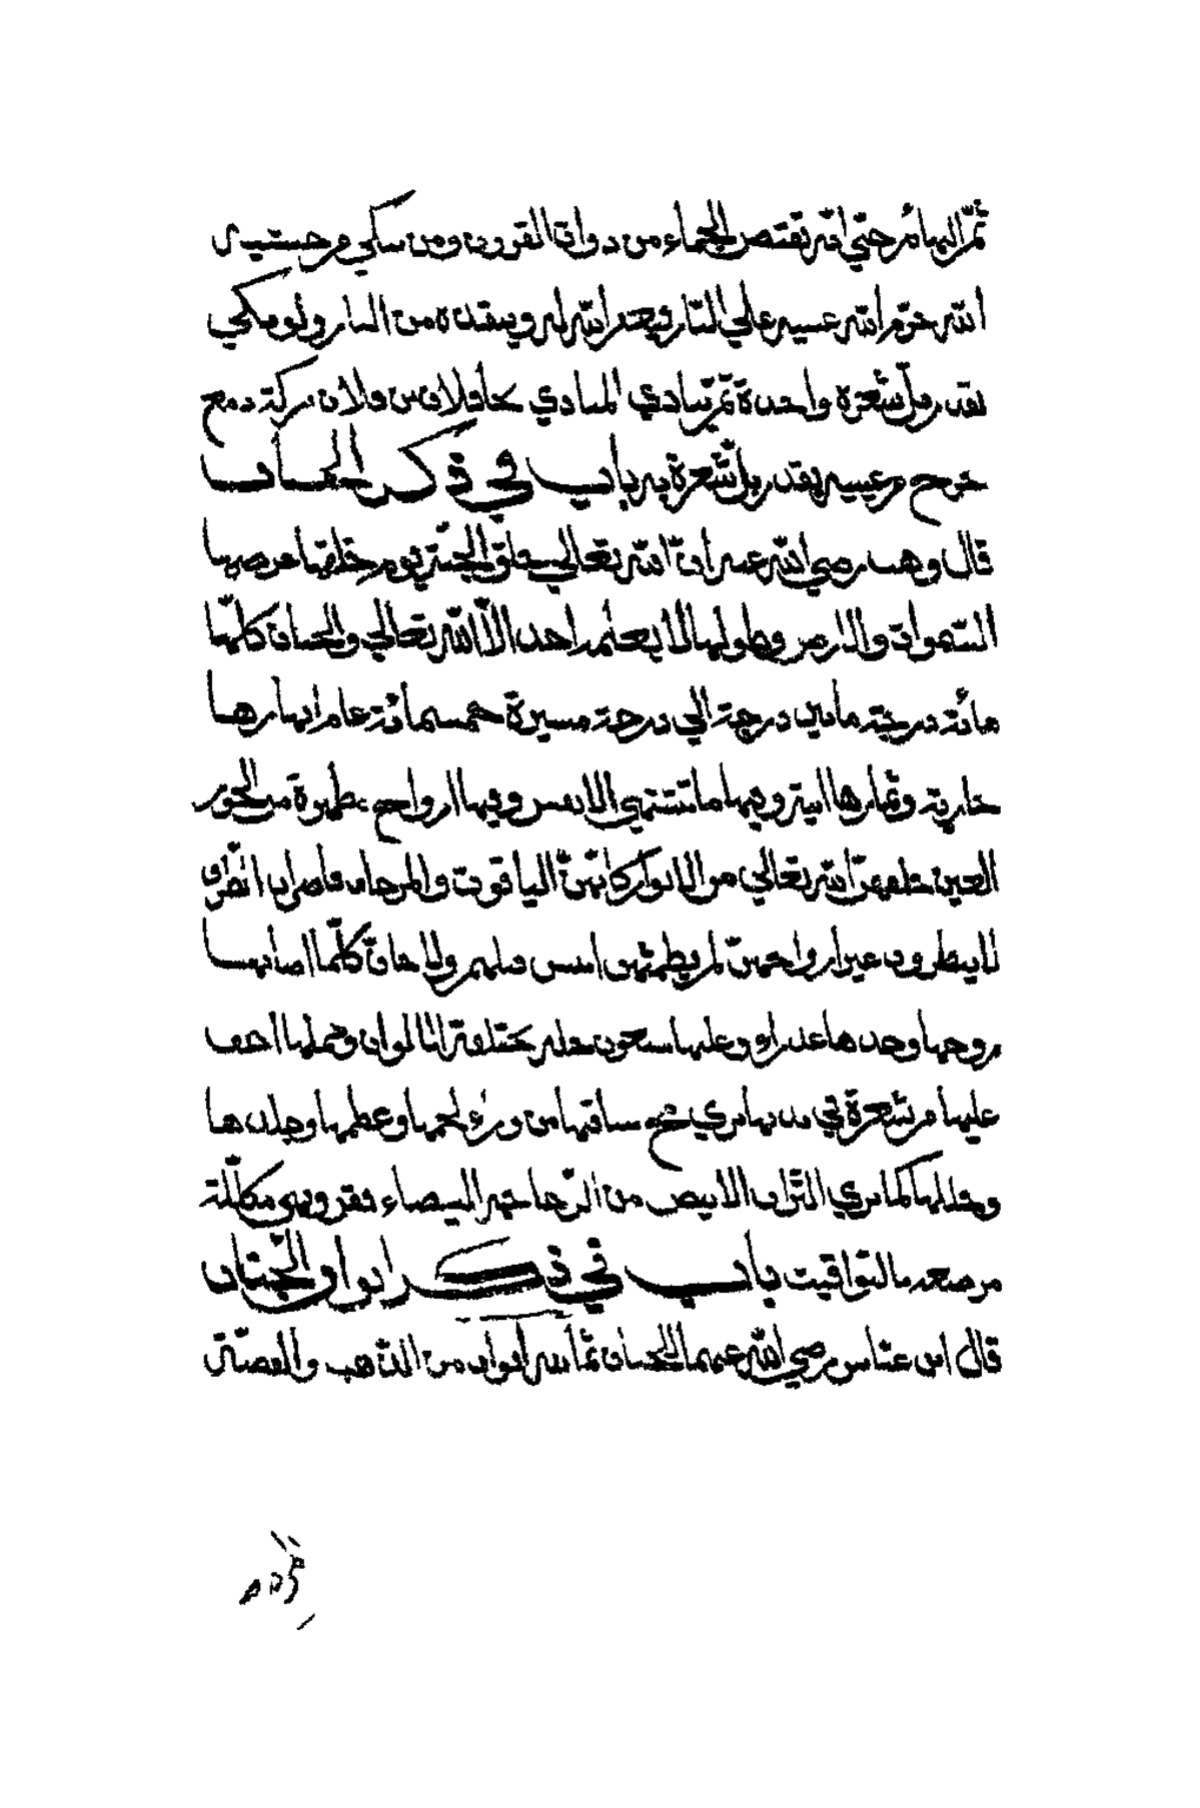 ثمّ البهائم حتي انّه تقتص الجماء من ذوات القرون ومن بكي من خشية
الله حرّم الله عينيه علي النّار فيغفر الله له وينقذه من النار ولو بكي
بقدر مثل شعرة واحدة ثمّ ينادي المنادي فلان من فلان بركة دمع
خرج من عينيه بقدر مثل شعرة به باب في ذكر الجنان
قال وهب رضي الله عنه انّ الله تعالي خلق الجنّة يوم خلقها عرضها
السّموات والارض وطولها لا يعلمه احد الّا الله تعالي والجنان كلّها
مائة درجة ما بين درجة الي درجة مسيرة خمسمائة عام انهارها
جارية وثمارها وفيها ما تشتهي الانفس وفيها ازواج مطهرة من الحور
العين خلقهنّ الله تعالي من الانوار كانّهنّ الياقوت والمرجان قاصرات الطّرف
لا ينظرون غير ازواجهنّ لم يطمثهن انس قبلهم ولا جانّ كلّما اصابها
زوجها وجدها عذراء وعليها سبعون حلة مختلفة الالوان وحملها اخف
عليها من شعرة في بدنها يري مخ ساقها من وراء لحمها وعظمها وجلدها
كما يري الشّراب الابيض من الزّجاجة البيضاء مكلّلة
مرصعة باليواقيت باب في ذكر ابواب الجنان
قال ابن عبّاس رضي الله عنهما للجنان ثمانية ابواب من الذّهب والفضّة